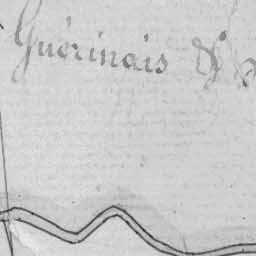 Guérinais